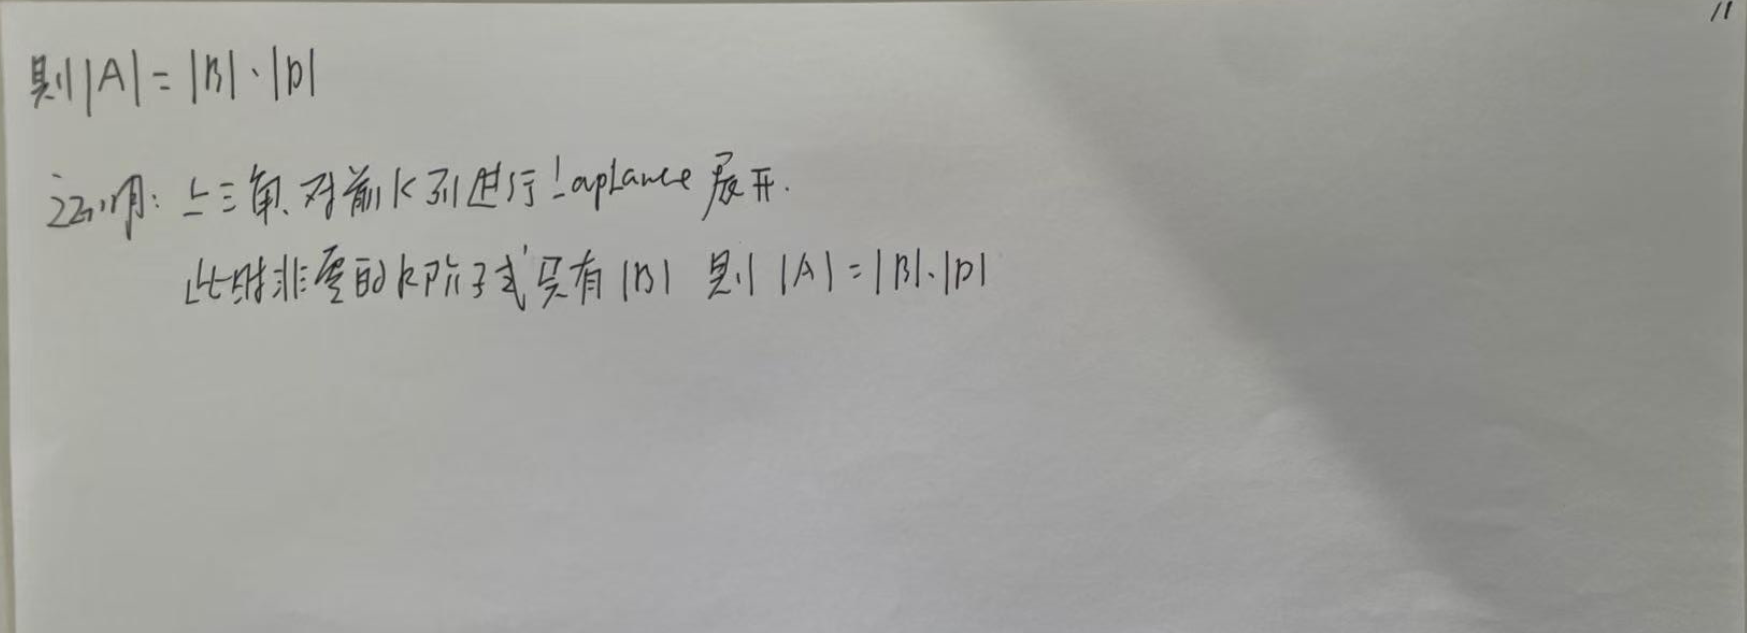 11
则|A|=|B|·|D|
证明: 上三角. 对前k列进行Laplance展开.
此时非零的k阶子式只有|B| 则|A|=|B|·|D|